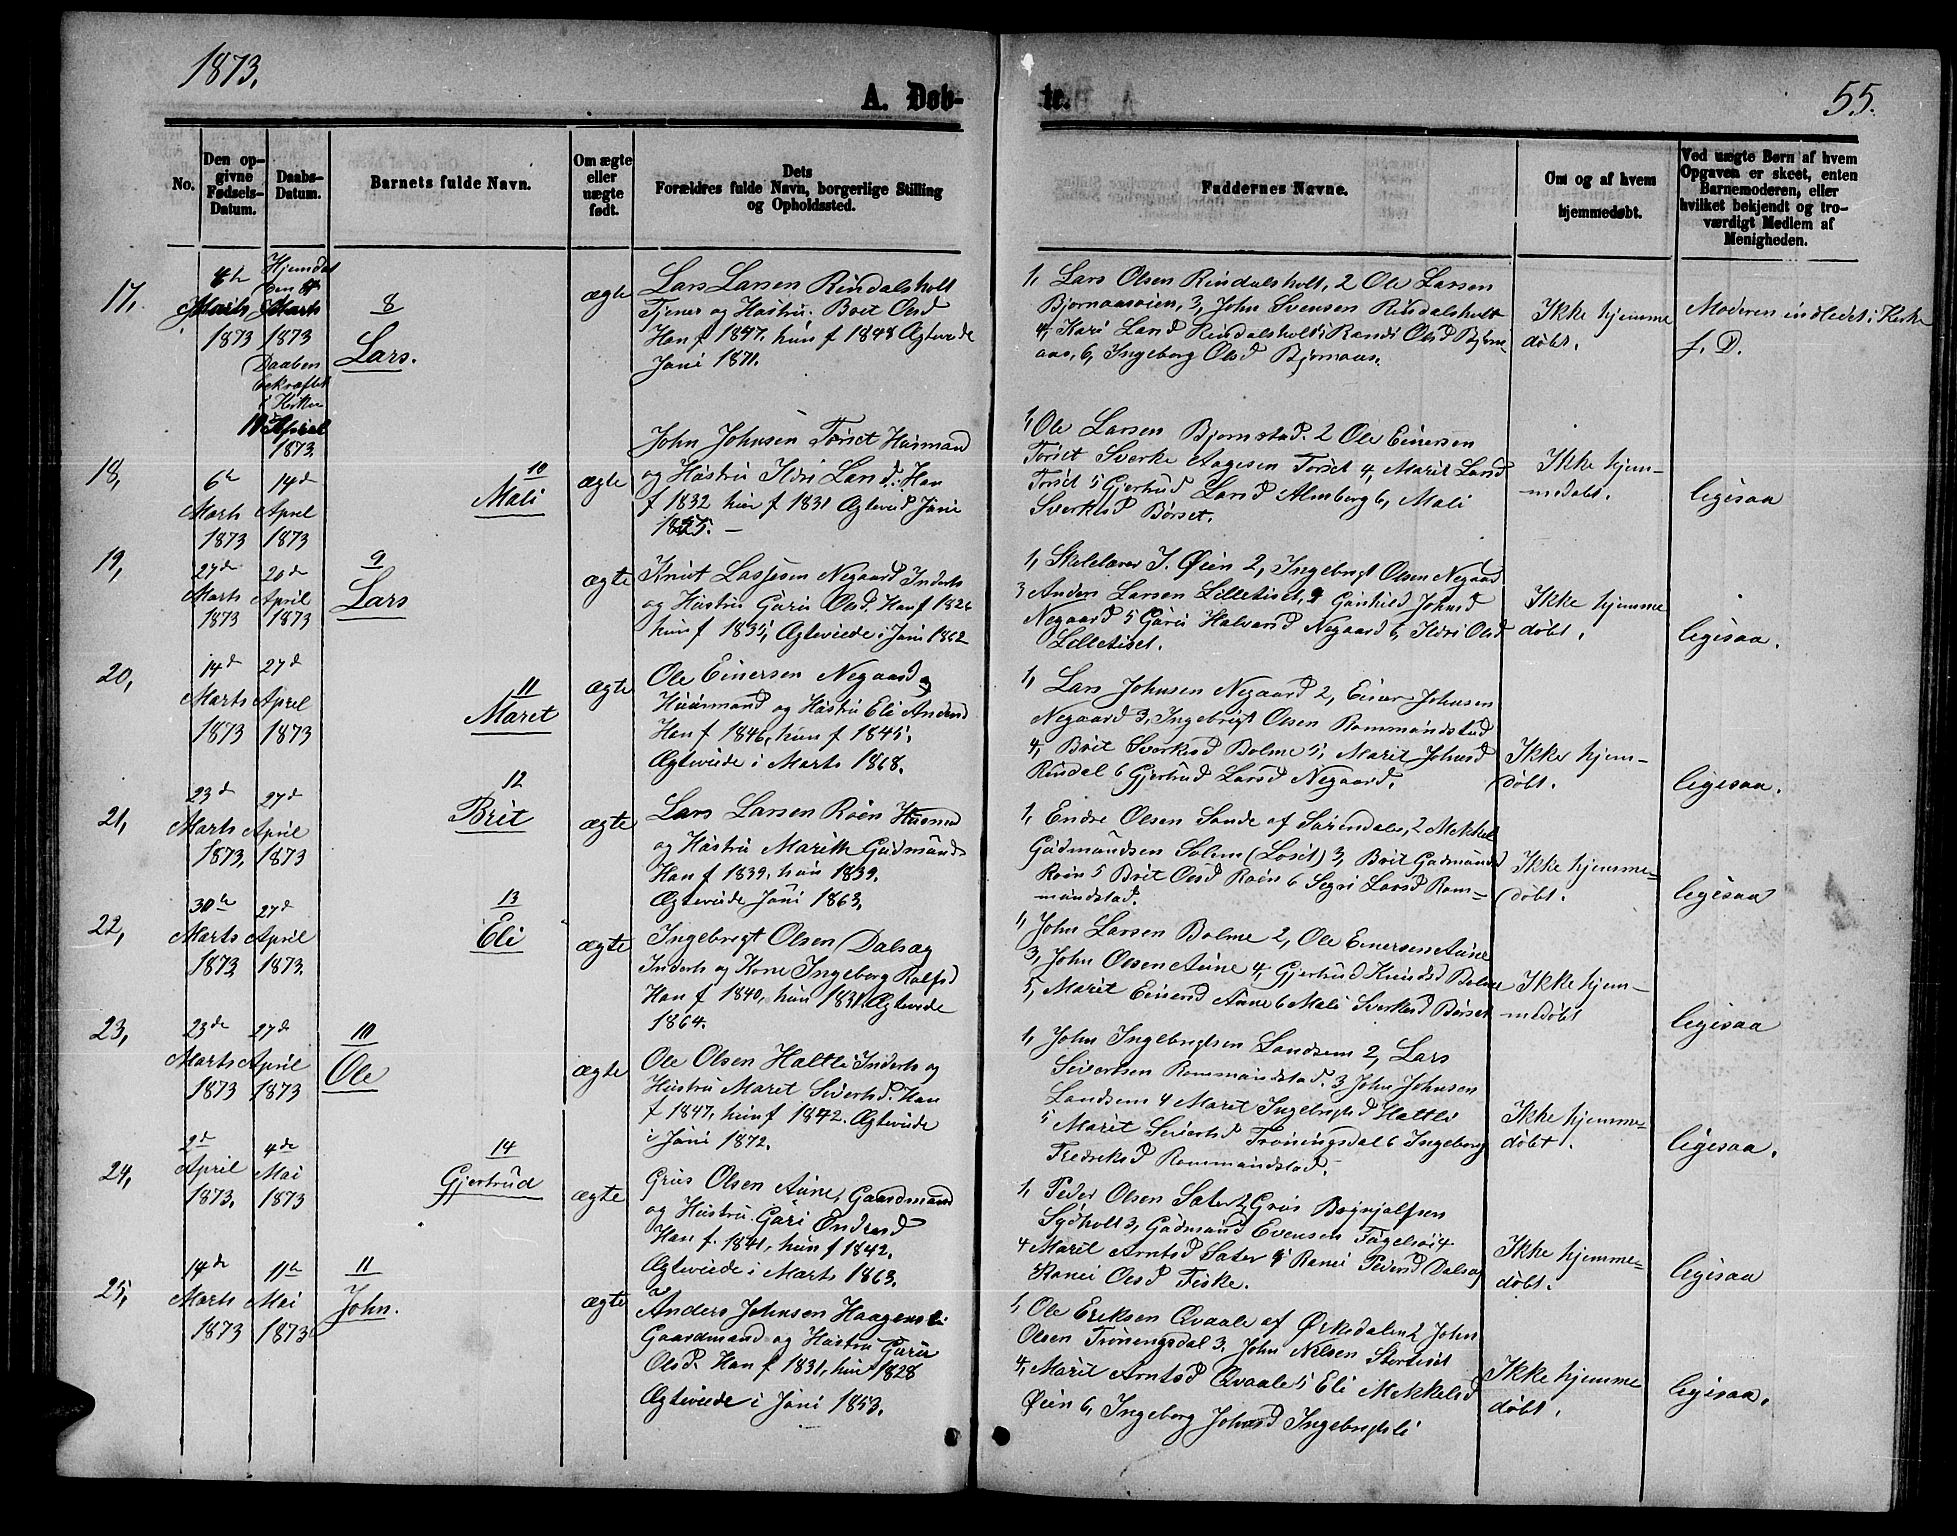 1873.
A. Døb-
te.
55.
No.
Den op-
givne
Fødsels-
Datum.
Daabs-
Datum.
Barnets fulde Navn.
Om ægte
eller
uægte
født.
Dets
Forældres fulde Navn, borgerlige Stilling
og Opholdssted.
Faddernes Navne.
Om og af hvem
hjemmedøbt.
Ved uægte Børn af hvem
Opgaven er skeet, enten
Barnemoderen, eller
hvilket bekjendt og tro-
værdigt Medlem af
Menigheden.
17,
Marts
1873
Marts
1873
Daaben
bekræftet
i Kirken
April
1873.
8
Lars.
ægte
Lars Larsen Rindalsholt
Tjener og Hustru. Brit Olsd
Han f 1847. hun f 1848 Ægteviede
Juni 1871.
1, Lars Olsen Rindalsholt, 2 Ole Larsen
Bjørnaasøien, 3, John Svensen Rindalsholt
4, Kari Larsd Rindalsholt 5 Randi Olsd Bjørn-
aas, 6, Ingeborg Olsd Bjørnaas.
Ikke hjemme
døbt.
Moderen indledet i Kirke
f. D.
18,
6te
Marts
1873
14de
April
1873
10
Mali
ægte
John Johnsen Torset Husmand
og Hustru Ildri Larsd. Han
f 1832 hun f 1831 Ægtevied Juni
1, Ole Larsen Bjørnstad. 2 Ole Einersen
Torset Sverke Aagesen Torset 4, Marit Larsd
Torset 5 Gjertrud Larsd Almberg 6, Mali
Sverkesd Børset.
Ikke hjem-
medøbt.
ligesaa
19,
27de
Marts
1873
20de
April
1873
9
Lars
ægte
Knut Lassesen Negaard Inderst
og Hustru Guru Olsd. Han f 1826
hun f 1835, Ægteviede i Juni 1862
1, Skolelærer J. Øien 2, Ingebrigt Olsen Negaard
3 Anders Larsen Lilletiset, 4 Gunhild Johnsd
Negaard 5 Guru Halvorsd Negaard 6, Ildri Olsd
Lilletiset.
Ikke hjemme
døbt.
ligesaa.
20,
14de
Marts
1873
27de
April
1873
11
Maret
ægte
Ole Einersen Negaard
Huusmand og Hustru Eli Andersd
Han f 1846, hun f 1845.
Ægteviede i Marts 1868.
1, Lars Johnsen Negaard 2, Einer Johnsen
Negaard 3, Ingebrigt Olsen Rommundstad
4, Brit Sverkesd Bolme 5, Marit Johnsd
Rindal 6 Gjertrud Larsd Negaard.
Ikke hjem-
døbt.
ligesaa.
21,
23de
Marts
1873.
27de
April
1873
12
Brit
ægte
Lars Larsen Roen Husmd
og Hustru Marith Gudmundsd
Han f 1839. hun 1839.
Ægteviede Juni 1863.
1, Endre Olsen Sande af Surendalen, 2 Mekkel
Gudmundsen Solem (Loset) 3, Brit Gudmundsd
Roen 5 Brit Olsd Roen 6 Segri Larsd Rom-
mundstad.
Ikke hjemme-
døbt.
ligesaa
22,
30te
Marts
1873.
27de
April
1873.
13
Eli
ægte
Ingebrigt Olsen Dalsæg
Inderst og Kone Ingeborg Rolfsd
Han f 1840, hun 1831 Ægteviede
1864.
1, John Larsen Bolme 2, Ole Einersen Aune
3, John Olsen Aune 4, Gjertrud Knudsd Bolme
5, Marit Einersd Aune 6 Mali Sverkesd Børset
Ikke hjem-
medøbt
ligesaa
23,
23de
Marts
1873
27de
April
1873
10
Ole
ægte
Ole Olsen Haltli Inderst og
Hustru Maret Sivertsd. Han
f 1847, hun f 1842. Ægteviede
i Juni 1872.
1, John Ingebrigtsen Landsem 2, Lars
Seiertsen Rommundstad. 3 John Johnsen
Landsem 4 Maret Ingebrigtsd Haltli
5 Marit Seiertsd Trøningsdal 6 Ingeborg
Fredriksd Rommundstad.
Ikke hjemme-
døbt.
ligesaa.
24,
2de
April
1873.
4de
Mai
1873
14
Gjertrud
ægte
Grus Olsen Aune, Gaardmand
og Hustru. Guri Endresd
Han f. 1841, hun f 1842.
Ægteviede i Marts 1863.
1, Peder Olsen Sæter 2 Grus
Sydholt 3, Gudmund Evensen Fugelsøi
4 Marit Arntsd Sæter 5 Ranei Pedersd Dalsæg
Ranei Olsd Fiske.
Ikke hjemme-
døbt.
ligesaa
25,
14de
Marts
1873
11te
Mai
1873
11
John.
ægte
Anders Johnsen Haagensli
Gaardmand og Hustru Guru
Olsd. Han f 1831, hun 1828
Ægteviede i Juni 1853.
1, Ole Eriksen Qvaale af Ørkedalen 2 John
Olsen Trøningsdal 3, John Nelsen Stortiset
4, Marit Arntsd Qvaale 5 Eli Mekkelsd
Øien 6, Ingeborg Johnsd Ingebrigtsli
Ikke hjemme
døbt.
ligesaa.